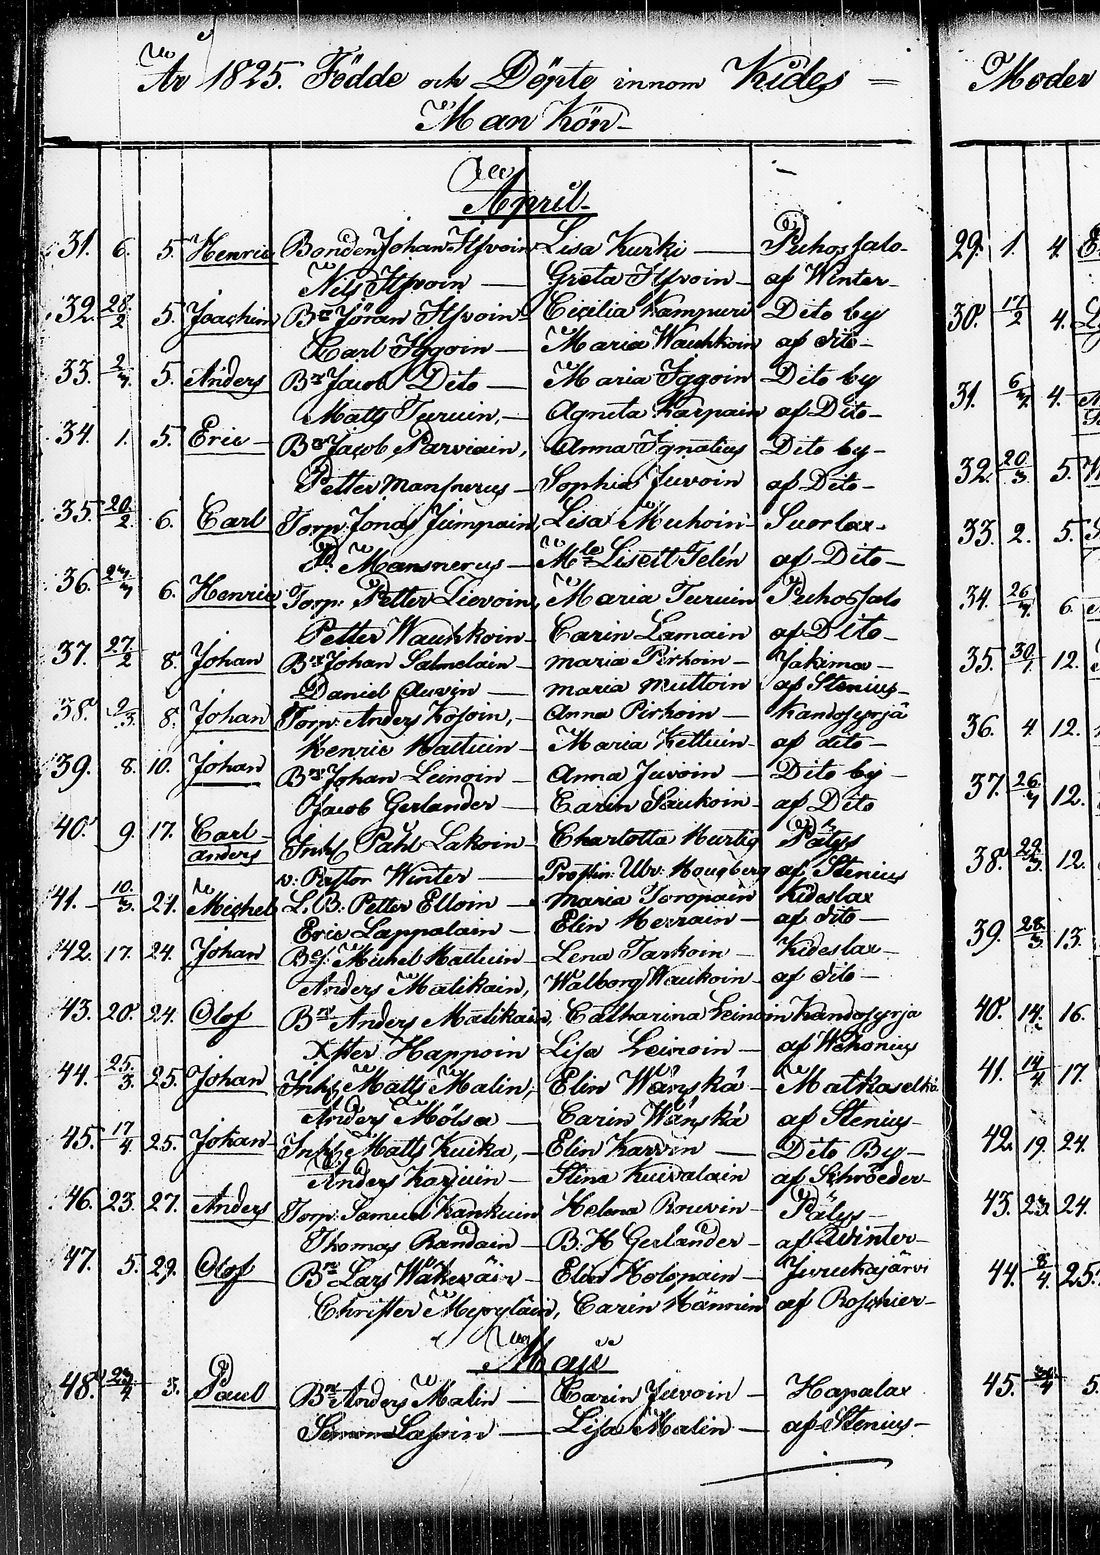 År 1825. Födde och Döpte innom Kides =
Man Kön-
April-
31. 6. 5. Henric Bonden Johan Ilfvoin Lisa Kurki — Puhossalo
Nils Ilfvoin — Greta Ilfvoin — af Winter-
32. 28/2 5. Joachim Bn Jöran Ilfvoin Cicilia Kampuri Dito by
Carl Iggoin — Maria Wauhkoin af dito-
33. 2/4 5. Anders Bn Jacob Dito — Maria Iggoin Dito by
Matts Turuin, — Agneta Karpain af Dito-
34. 1. 5. Eric — Bn Jacob Parviain, Anna Ignatius Dito by-
Petter Mansnerus — Sophia Juvoin af Dito-
35. 20/2 6. Carl Torp: Jonas Jumpain, Lisa Muhoin- Suorlax-
P. Mansnerus — Mlle Lisett Telén af Dito-
36. 27/4 6. Henric Torp: Petter Lievoin, Maria Turuin Puhossalo
Petter Wauhkoin- Carin Lamain af Dito-
37. 27/2 8. Johan Bn Johan Salmelain- Maria Pirhoin- Jakima-
Daniel Auvin — Maria Muttoin af Stenius-
38. 2/3 8. Johan Torp: Anders Kosoin, — Anna Pirhoin — Kandosyrjä
Henric Hattuin — Maria Kettuin- af dito-
39. 8. 10. Johan Bn Johan Leinoin — Anna Juvoin — Dito by-
Jacob Gerlander — Carin Saukoin- af Dito
40. 9. 17. Carl- Inh. Påhl Lakoin — Charlotta Hurtig Pälys
anders v: Pastor Winter — Prostin: Ulr: Hougberg af Stenius
41. 10/3. 21. Michel L. B: Petter Elloin — Maria Toropain Kideslax
Eric Lappalain — Elin Herrain — af dito-
42. 17. 24. Johan Bn: Michel Hattuin — Lena Tarkoin — Kideslax-
Anders Matikain, Walborg Waukoin- af dito-
43. 20. 24. Olof Bn Anders Matikain, Catharina Leinoin Kandosyrja
Xster Happoin Lisa Leinoin — af Wihonius
44. 25/3. 25. Johan Inh. Matts Malin, Elin Wänskä — Matkaselkä
Anders Mölsa — Carin Wänskä af Stenius-
45. 17/4 25. Johan Inh. Matts Kuika, — Elin Karvin — Dito By-
Anders Karjuin — Stina Kuivalain af Schröeder-
46. 23. 27. Anders Torp: Samuel Kankuin Helena Rouvin — Pälys-
Thomas Randain — B. H Gerlander — af Winter-
47. 5. 29. Olof Bn Lars Wäkeväin — Elin Holopain — Juruksjärvi
Christer Myrylain, Carin Hännin af Roschier-
Maji
48. 27/4 3. Paul Bn Anders Malin — Carin Juvoin — Hapalax
Simon Lassin — Lisa Malin — af Stenius-
Moder
29. 1. 4.
30. 17/2 4.
31. 6/4 4.
32. 20/3 5.
33. 2. 5.
34. 26/4 6.
35. 30/1 12.
36. 4. 12.
37. 26/4 12.
38. 29/3. 12.
39. 28/3 13.
40. 14. 16.
41. 14/4. 17.
42. 19. 24.
43. 23. 24.
44. 8/4 25.
45. 5.